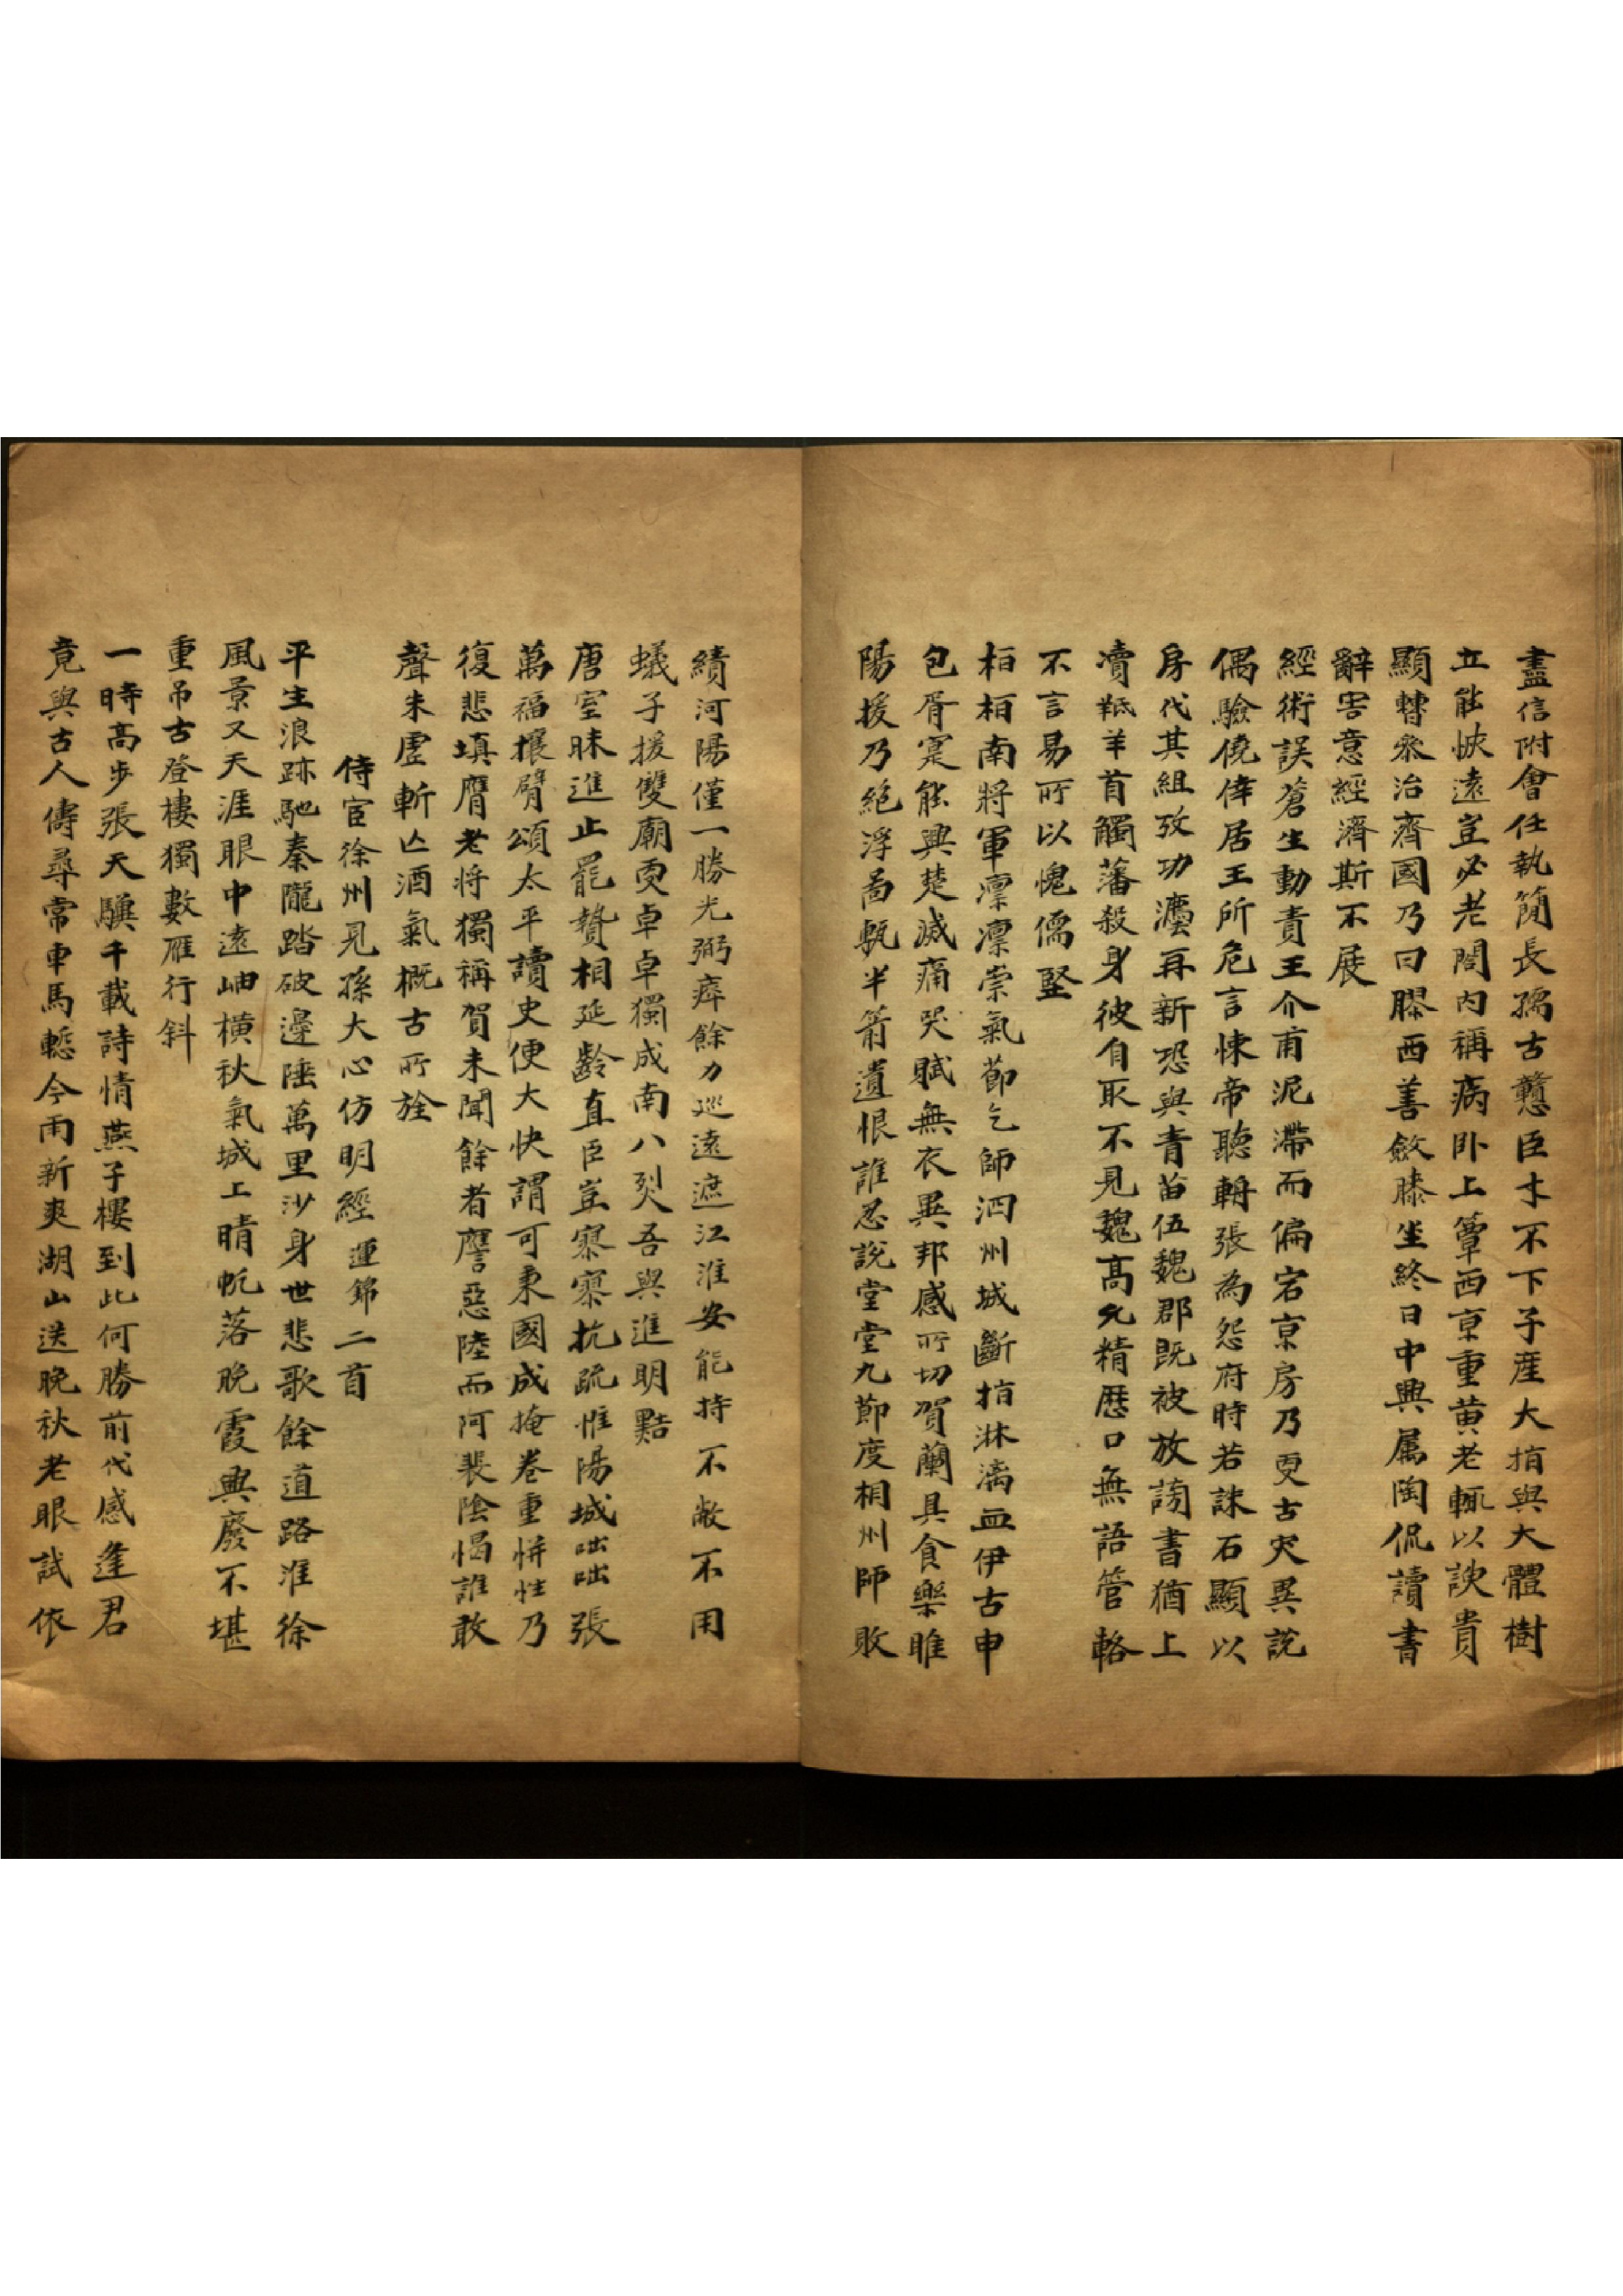 盡信附會任執簡長孺古戇臣才不下子産大指與大體樹
立能恢遠豈必老閤內稱病卧上簟西京重黃老輒以諛貴
顯轉叅治齊國乃曰膠西善斂膝坐終日中興属陶侃讀書
辭害意經濟斯不展
經術誤蒼生動責王介甫泥滯而偏宕京房乃更古灾異說
偶驗僥倖居王所危言悚帝聽輈張為怨府時若誅石顯以
房代其組攷功灋再新恐與青苗伍魏郡既被放謗書猶上
瀆羝羊首觸藩殺身彼自取不見魏高允精曆口無語管輅
不言易所以愧儒竪
桓桓南將軍凛凛崇氣節乞師泗州城斷指淋漓血伊古申
包胥寔能興楚滅痛哭賦無衣異邦感所切賀蘭具食樂睢
陽援乃絕浮啚甎半箭遺恨誰忍說堂堂九節度相州師敗
績河陽僅一勝光弼瘁餘力巡遠遮江淮安能持不敝不用
蟻子援雙廟更卓卓獨成南八烈吾與進明點
唐室昧進止罷贄相延齡直臣豈寥寥抗疏惟陽城咄咄張
萬福攘臂頌太平讀史便大快謂可秉國成掩卷重恲性乃
復悲填膺老将獨稱賀未聞餘者譍惡陸而阿裴陰愒誰敢
聲朱虛斬亾酒氣概古所詮
侍宦徐州見孫大心仿明經運錦二首
平生浪跡馳秦隴踏破邊陲萬里沙身世悲歌餘道路淮徐
風景又天涯眼中遠岫橫秋氣城上晴帆落晚霞興廢不堪
重吊古登樓獨數雁行斜
一時高步張天驥千載詩情燕子樓到此何勝前代感逢君
竟與古人儔尋常車馬慙今雨新爽湖山送晚秋老眼試依